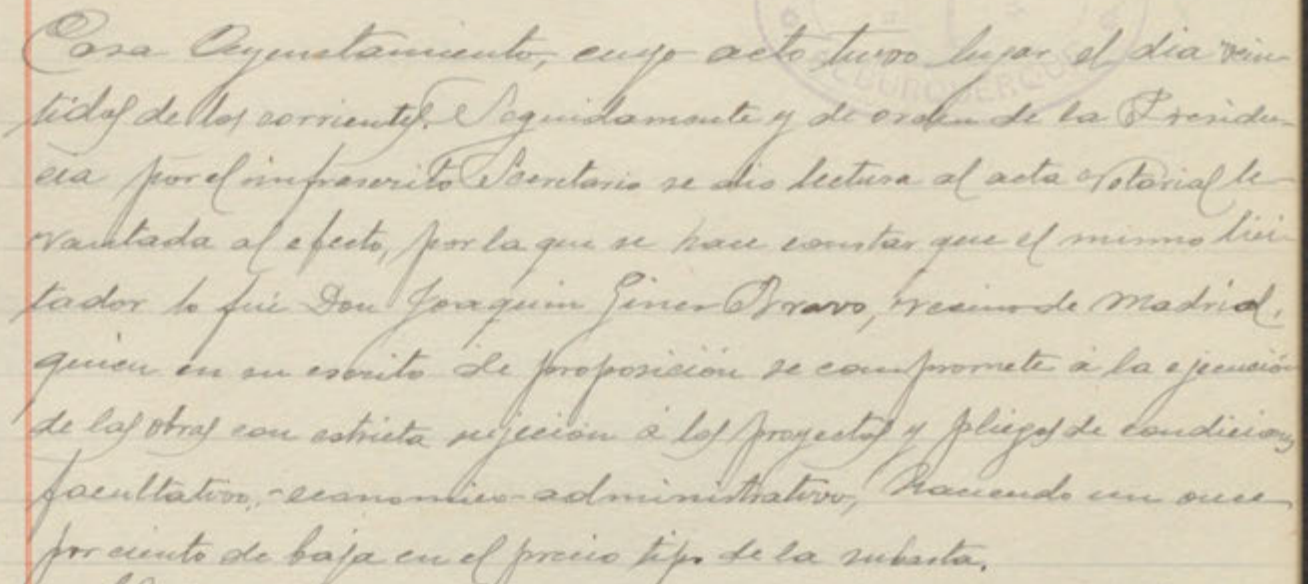 Casa Ayuntamiento, cuyo acto tuvo lugar el dia vein-
tidos de los corrientes. Seguidamente y de orden de la Presiden-
cia por el infrascrito Secretario se dio lectura al acta Notarial le-
vantada al efecto, por la que se hace constar que el mismo lici-
tador lo fué Don Joaquin Giner Bravo, vecino de Madrid,
quien en su escrito de proposición se compromete á la ejecución
de las obras con estricta sujeción á los proyectos y pliegos de condiciones
facultativo,-economico-administrativo, haciendo un once
por ciento de baja en el precio tipo de la subasta.
ALBURQUERQUE